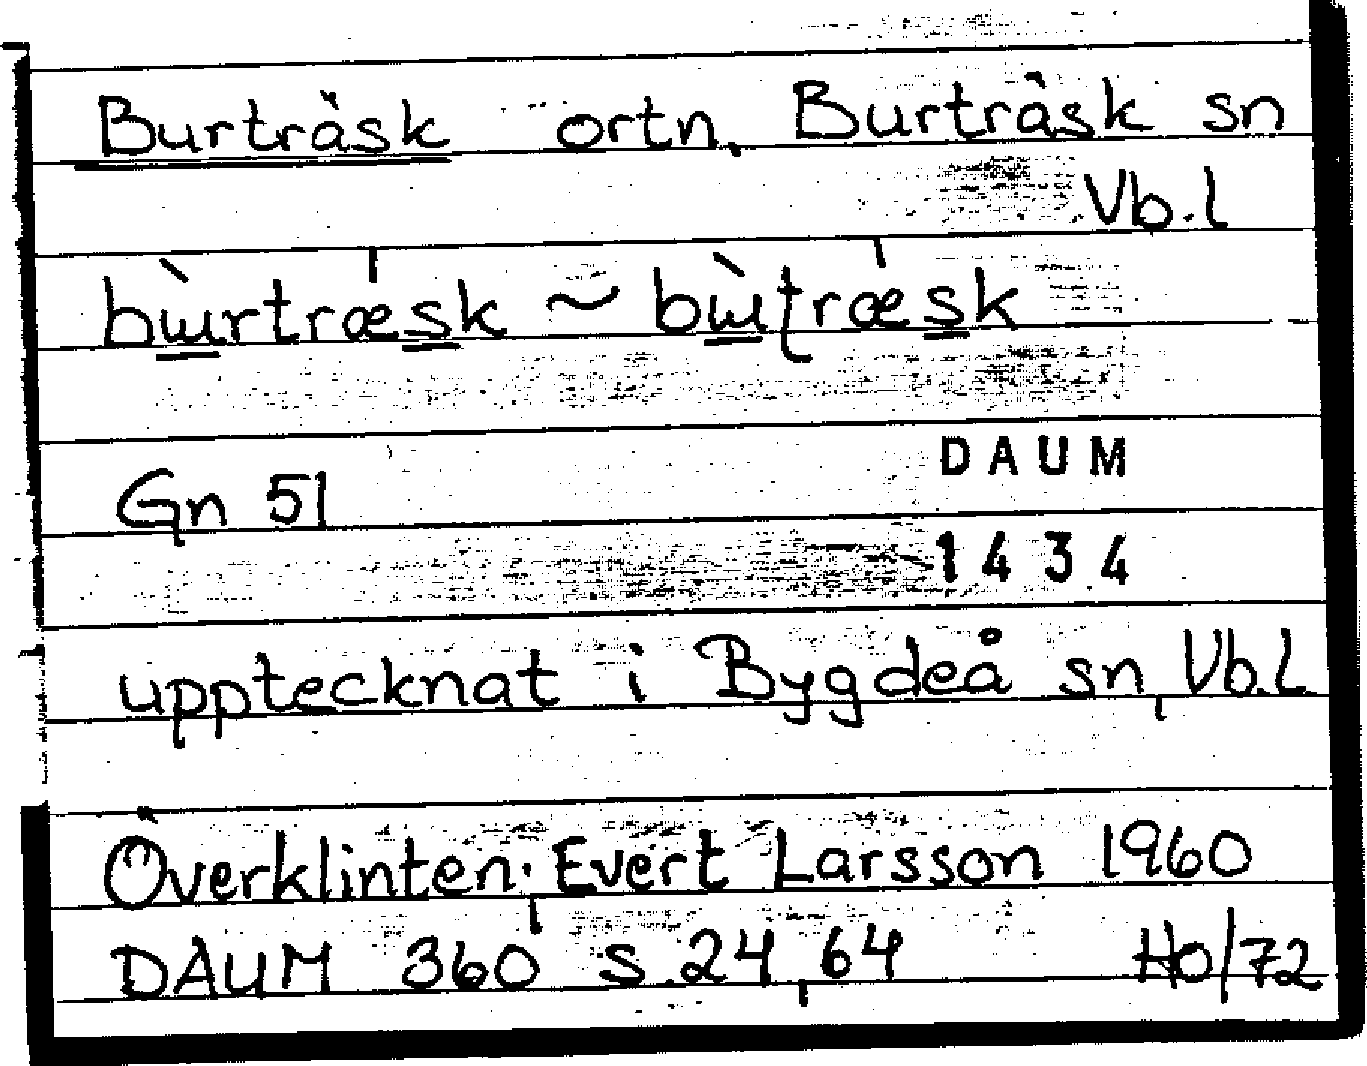 Burträsk ortn, Burträsk sn
Vb.l
bɯ̀rtræsk ~ bɯ̀ʈræsk
Gn 51
DAUM
1434
upptecknat i Bygdeå sn, Vb.l
Överklinten, Evert Larsson 1960
DAUM 360 s. 24, 64 HO/72